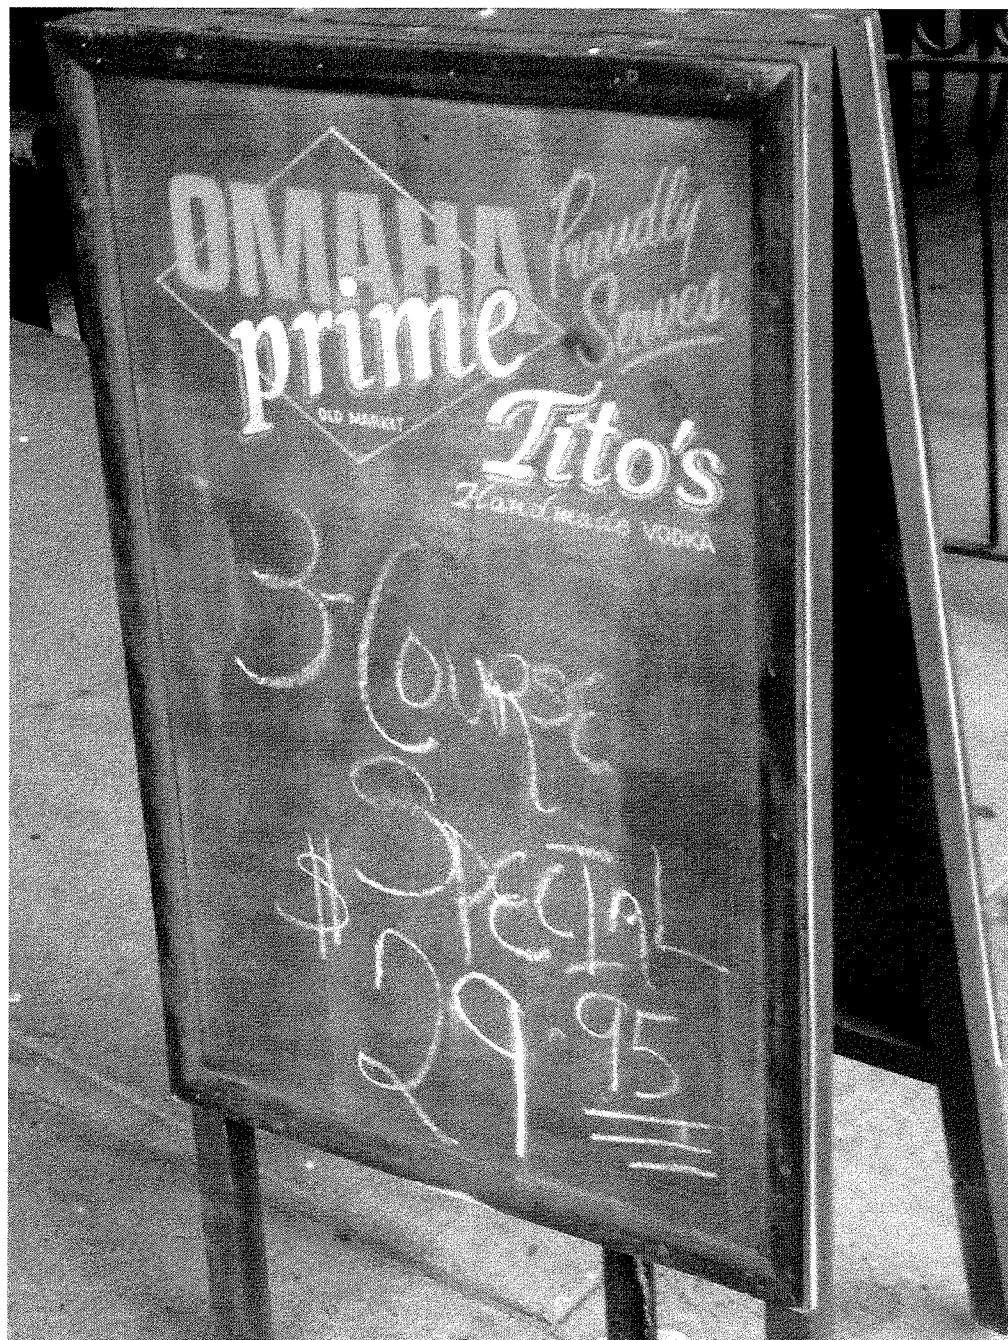 OMAHA
prime
OLD MARKET
Proudly
Serves
Tito's
Handmade VODKA
3-Course
Special
$29.95